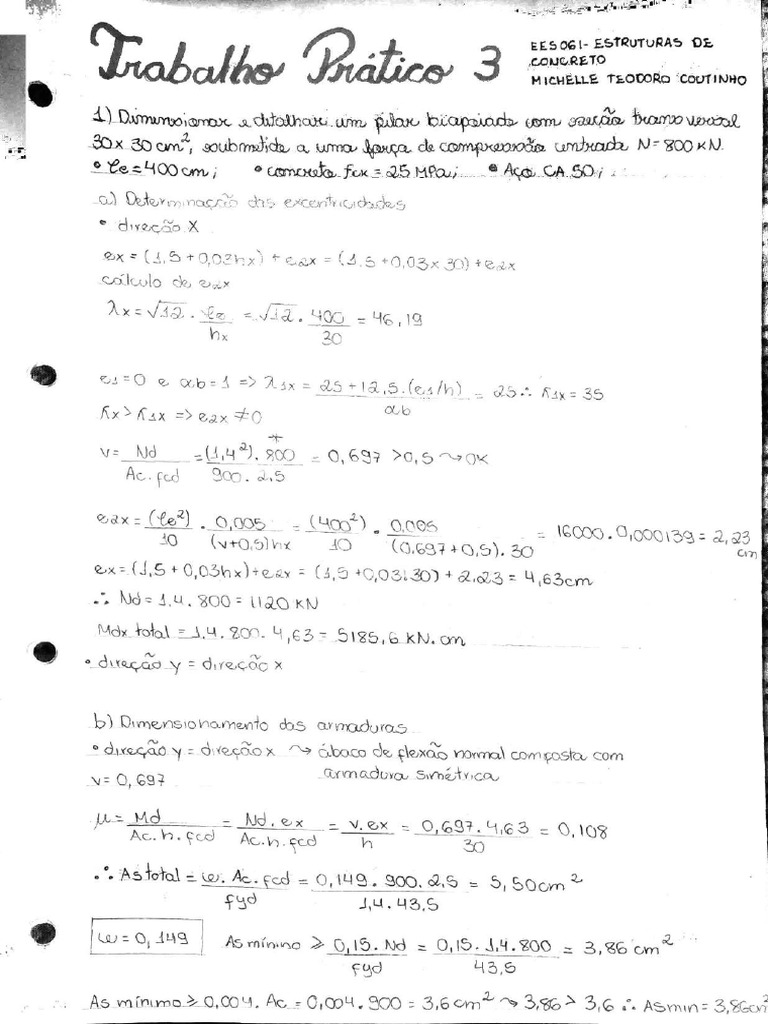 Trabalho Prático 3
EES061- ESTRUTURAS DE
CONCRETO
MICHELLE TEODORO COUTINHO
1) Dimensionar e detalhar um pilar biapoiado com seção transversal
30 x 30 cm², submetido a uma força de compressão centrada N = 800 KN.
• le = 400 cm; • concreto fck = 25 MPa; • Aço CA 50;
a) Determinação das excentricidades
• direção X
ex = (1,5 + 0,03hx) + e2x = (1,5 + 0,03 x 30) + e2x
cálculo de e2x
λx = √12 . le/hx = √12 . 400/30 = 46,19
e1 = 0 e αb = 1 => λ1x = 25 + 12,5.(e1/h)/αb = 25 ∴ λ1x = 35
λx > λ1x => e2x ≠ 0
v = Nd/Ac.fcd = (1,4²).800*/900.2,5 = 0,697 > 0,5 ⤳ OK
e2x = (le²)/10 . 0,005/(v+0,5)hx = (400²)/10 . 0,005/(0,697+0,5).30 = 16000.0,000139 = 2,23 cm
ex = (1,5 + 0,03hx) + e2x = (1,5 + 0,03.30) + 2,23 = 4,63cm
∴ Nd = 1,4.800 = 1120 KN
Mdx total = 1,4.800.4,63 = 5185,6 KN.cm
• direção y = direção x
b) Dimensionamento das armaduras
• direção y = direção x ⤳ ábaco de flexão normal composta com
armadura simétrica
v = 0,697
μ = Md/Ac.h.fcd = Nd.ex/Ac.h.fcd = v.ex/h = 0,697.4,63/30 = 0,108
∴ As total = w.Ac.fcd/fyd = 0,149.900.2,5/1,4.43,5 = 5,50cm²
w = 0,149
As mínino ≥ 0,15.Nd/fyd = 0,15.1,4.800/43,5 = 3,86 cm²
As mínimo ≥ 0,004.Ac = 0,004.900 = 3,6cm² ⤳ 3,86 > 3,6 ∴ Asmin = 3,86cm²